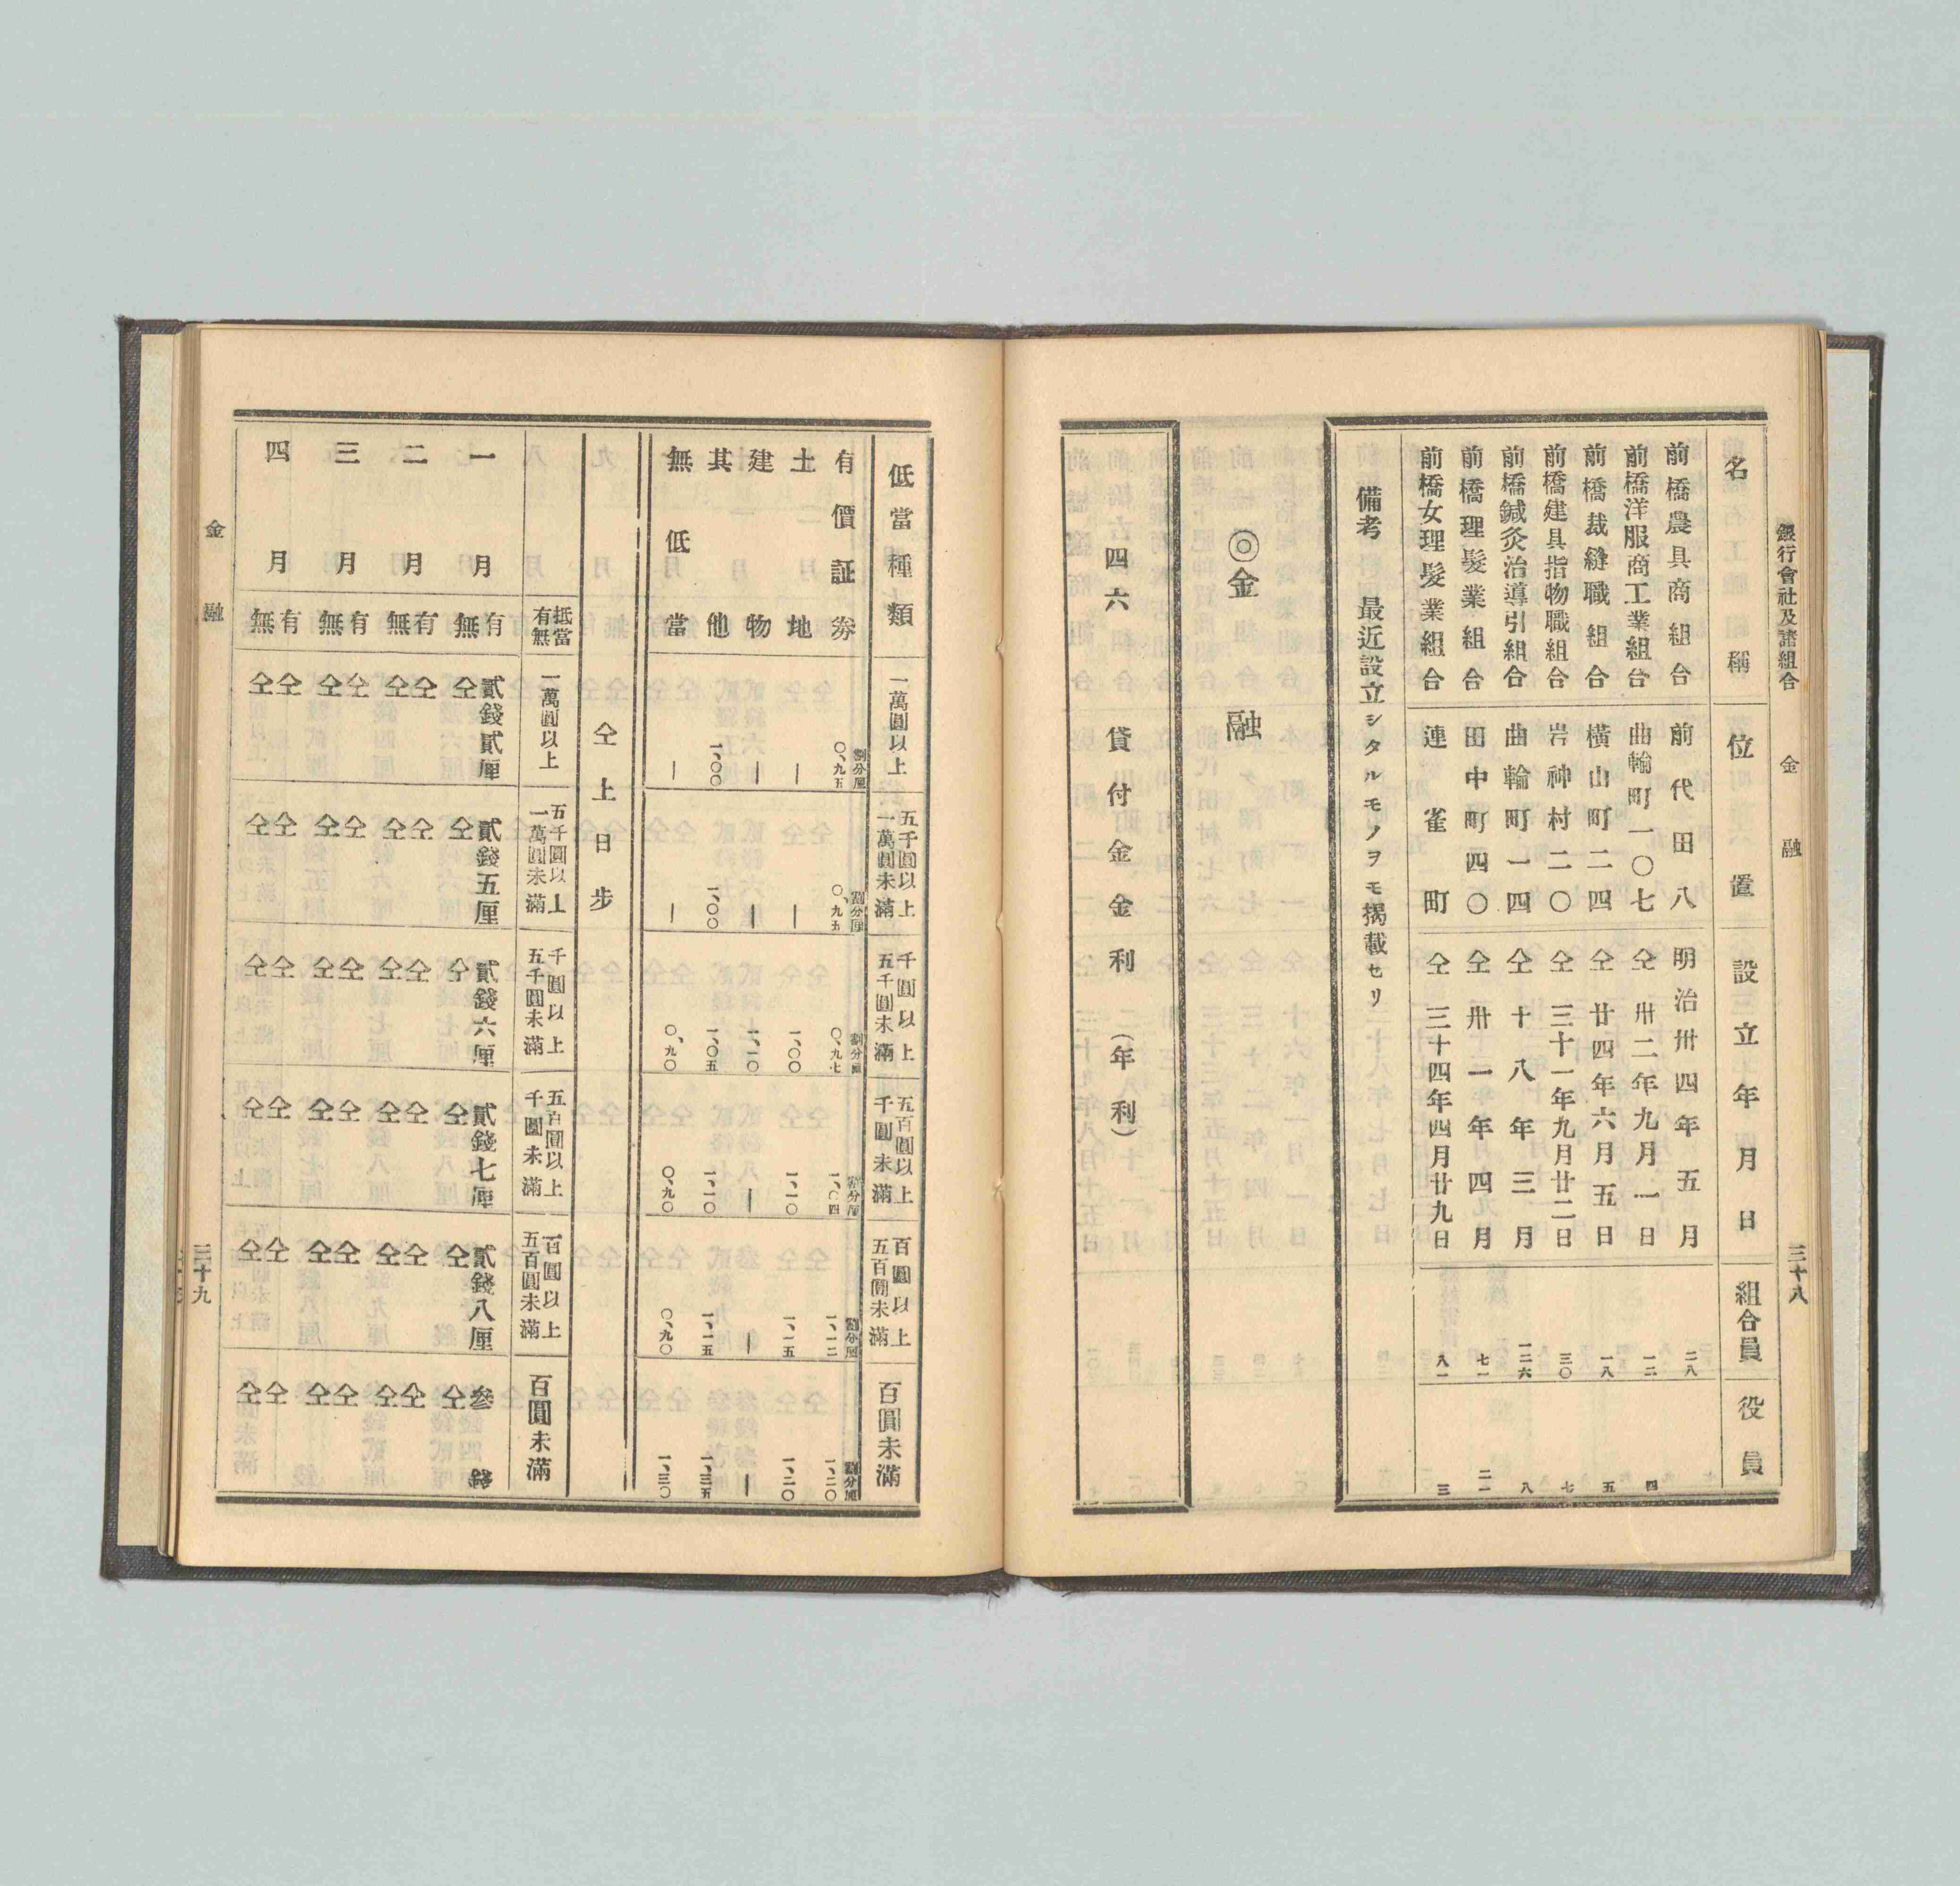 銀行會社及諸組合　金融　三十八
名稱　位置　設立年月日　組合員　役員
前橋農具商組合　前代田八　明治卅四年五月　二八
前橋洋服商工業組合　曲輪町一〇七　仝卅二年九月一日　一二　四
前橋裁縫職組合　橫山町二四　仝廿四年六月五日　一八　五
前橋建具指物職組合　岩神村二〇　仝三十一年九月廿二日　三〇　七
前橋鍼灸治導引組合　曲輪町一四　仝十八年三月　一二六　八
前橋理髮業組合　田中町四〇　仝卅一年四月　七一　二一
前橋女理髮業組合　連雀町　仝三十四年四月廿九日　八一　三
備考　最近設立シタルモノヲモ揭載セリ
◎金融
四六　貸付金金利（年利）
低當種類　一萬圓以上　五千圓以上一萬圓未滿　千圓以上五千圓未滿　五百圓以上千圓未滿　百圓以上五百圓未滿　百圓未滿
割分厘　割分厘　割分厘　割分厘　割分厘　割分厘
有價証劵　〇、九五　〇、九五　〇、九七　一、〇四　一、一二　一、二〇
土地　｜　｜　一、〇〇　一、一〇　一、一五　一、二〇
建物　｜　｜　一、一〇　｜　｜　｜
其他　一、〇〇　一、〇〇　一、〇五　一、一〇　一、一五　一、三五
無低當　｜　｜　〇、九〇　〇、九〇　〇、九〇　一、三〇
仝上日步
抵當有無　一萬圓以上　五千圓以上一萬圓未滿　千圓以上五千圓未滿　五百圓以上千圓未滿　百圓以上五百圓未滿　百圓未滿
一月　有　貳錢貳厘　貳錢五厘　貳錢六厘　貳錢七厘　貳錢八厘　參錢
無　仝　仝　仝　仝　仝　仝
二月　有　仝　仝　仝　仝　仝　仝
無　仝　仝　仝　仝　仝　仝
三月　有　仝　仝　仝　仝　仝　仝
無　仝　仝　仝　仝　仝　仝
四月　有　仝　仝　仝　仝　仝　仝
無　仝　仝　仝　仝　仝　仝
金融　三十九